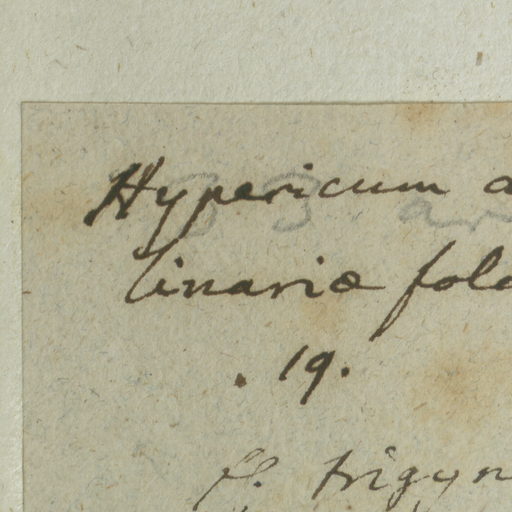 Hypericum a
linariæ folo
. 19.
fl. trigyn